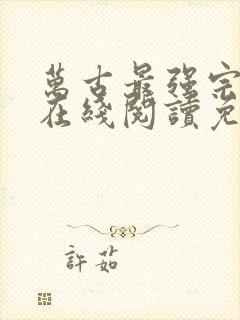 萬古最強宗
在綫閱讀免
許茹